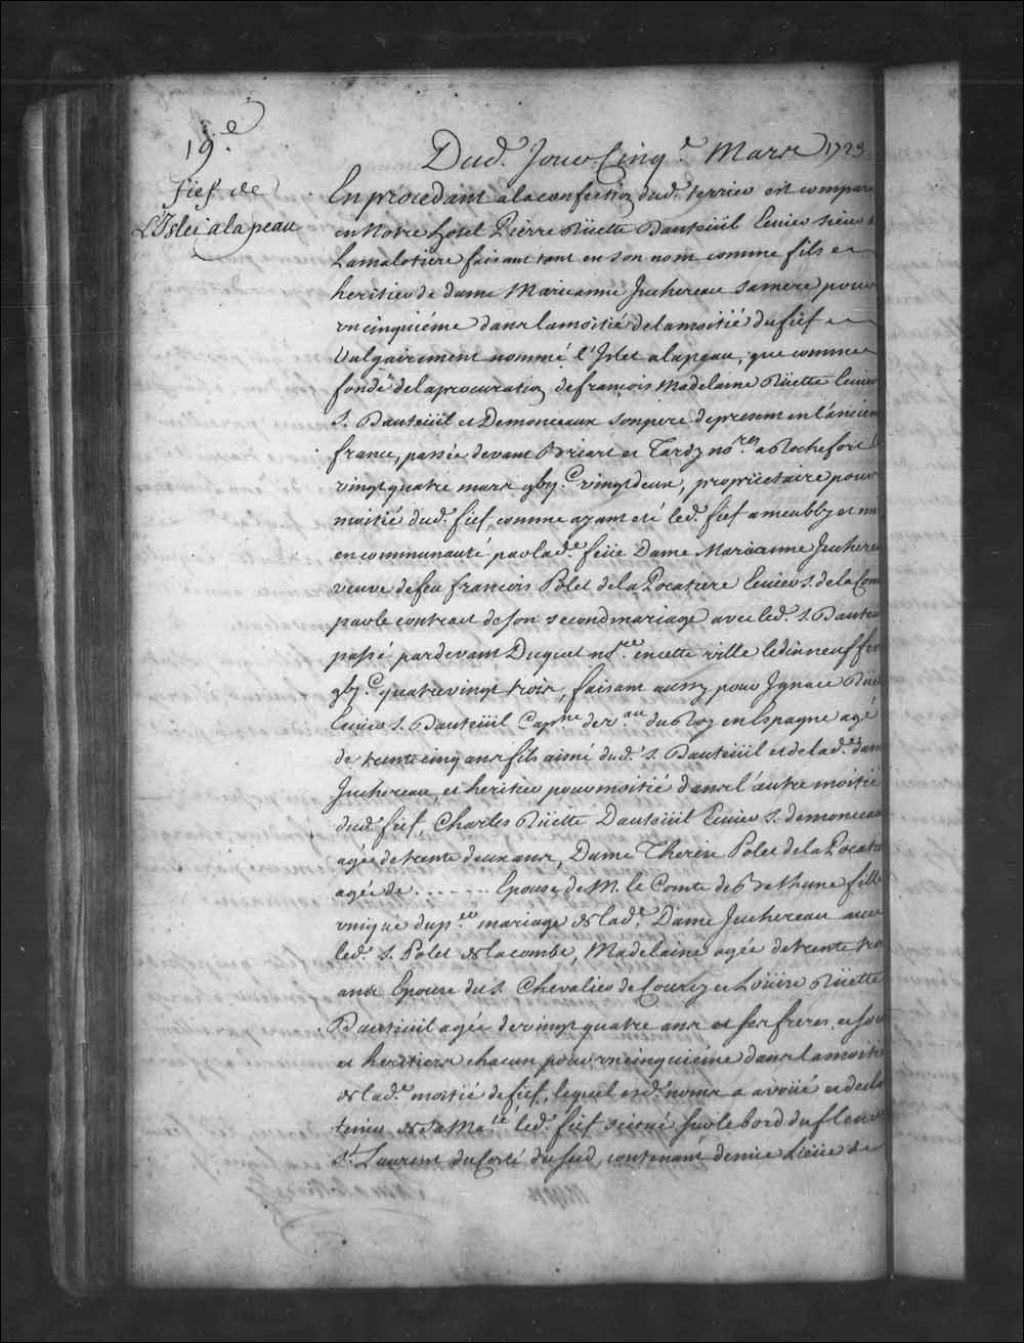 19.e
fief de
L'Islet a la peau
Dud. Jour Cinq.e Mars 1723
En procedant a la confection dud. terrier est compar
en Notre hotel Pierre Rüette Dauteüil Ecuier sieur
Lamalotiere faisant tant en son nom comme fils et
heritier de dame Marieanne Juchereau sa mere pour
un cinquiéme dans la moitié de la moitié du fief
Vulgairement nommé l'Islet a la peau, que comme
fondé de la procuration de francois Madelaine Rüette Ecuier
S. Dauteüil et Demonceaux son pere de present en l'ancien
france, passée devant Briart et Tardy no.res a Rochefort
vingt quatre mars gbij.C vingt deux, propriétaire pour
moitié dud. fief comme ayant eté led. fief ameubly et m
en communauté par lad.e feüe Dame Marieanne Juchere
veuve de feu francois Polet de la Pocatiere Ecuier S. de la Com
par le contract de son second mariage avec led. S. Dauteu
passé pardevant Duquet no.re en cette ville le dix neuf fev
gbj.C quatre vingt trois, faisant aussy pour Ignace Rüe
Ecuier S. Dauteüil Cap.ne de v.au du Roy en Espagne agé
de trente cinq ans fils ainé dud. S. Dauteüil et de lad.e dam
Juchereau, et heritier pour moitié dans l'autre moitié
dud. fief, Charles Rüette Dauteüil Ecuier S. demoncea
agée de trente deux ans, Dame Therese Polet de la Pocati
agée de ....... Epouse de M. le Comte de Bethune fille
unique du p.er mariage de lad.e Dame Juchereau avec
led. S. Polet de la combe, Madelaine agée de trente tro
ans Epouse du S. Chevalier de Courcy et Loüise Rüette
Dauteüil agée de vingt quatre ans et ses freres et so
et heritiers chacun pour un cinquieme dans la moitié
de lad.e moitié de fief, lequel esd. noms a avoüé et decla
tenir de sa Ma.té led. fief scitué sur le bord du fleuv
S.t Laurent du costé du sud, contenant demie lieüe de